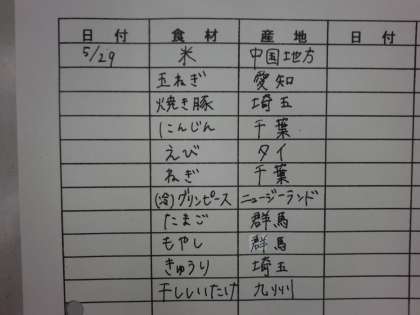 日付 食材 産地 日付
5/29 米 中国地方
玉ねぎ 愛知
焼き豚 埼玉
にんじん 千葉
えび タイ
ねぎ 千葉
(冷)グリンピース ニュージーランド
たまご 群馬
もやし 群馬
きゅうり 埼玉
干ししいたけ 九州